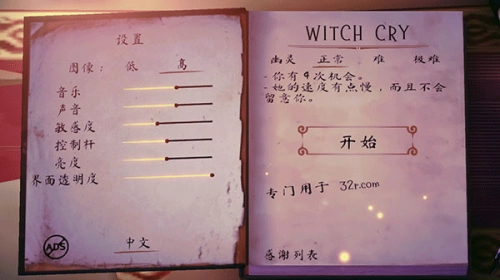 设置
图像: 低 高
音乐
声音
敏感度
控制杆
亮度
界面透明度
ADS
中文
WITCH CRY
幽灵 正常 难 极难
- 你有4次机会。
- 她的速度有点慢, 而且不会
留意你。
开始
专门用于 32r.com
感谢列表